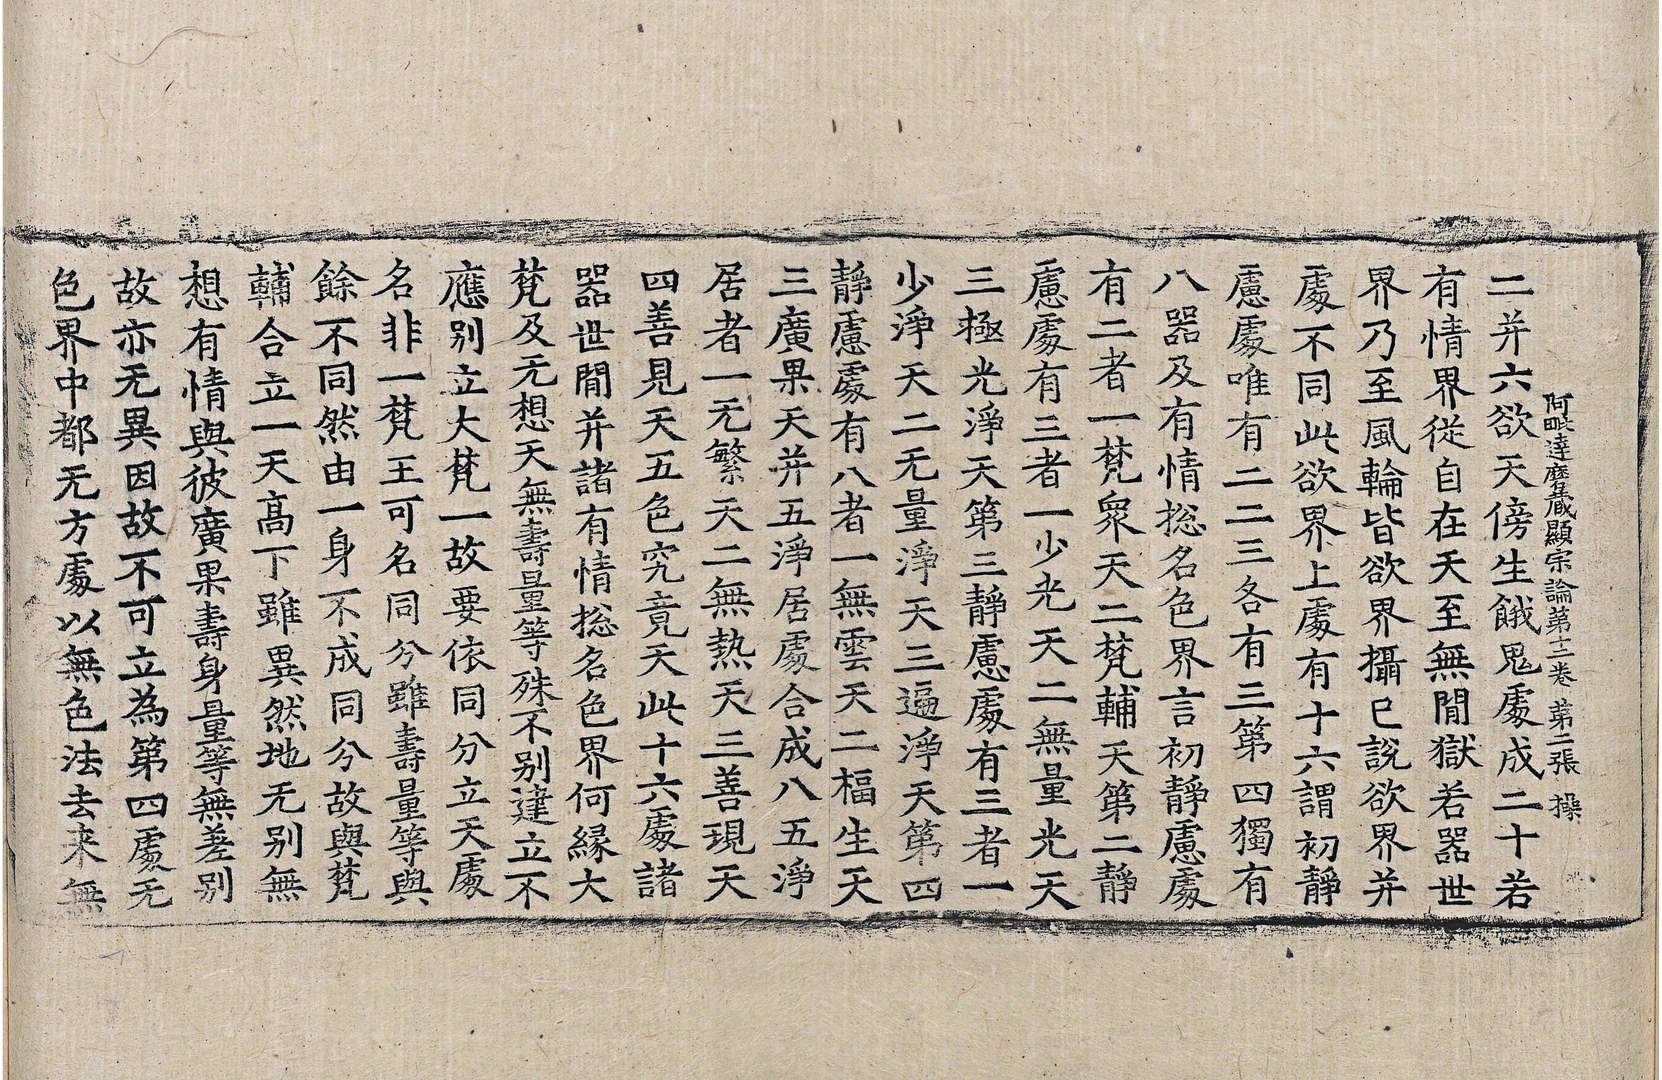 阿毗達磨藏顯宗論第十二卷 第二張 操
二并六欲天傍生餓鬼處成二十若
有情界從自在天至無間獄若器世
界乃至風輪皆欲界攝已說欲界并
處不同此欲界上處有十六謂初靜
慮處唯有二二三各有三第四獨有
八器及有情捴名色界言初靜慮處
有二者一梵衆天二梵輔天第二靜
慮處有三者一少光天二無量光天
三極光淨天第三靜慮處有三者一
少淨天二无量淨天三遍淨天第四
靜慮處有八者一無雲天二福生天
三廣果天并五淨居處合成八五淨
居者一无繁天二無熱天三善現天
四善見天五色究竟天此十六處諸
器世間并諸有情捴名色界何緣大
梵及无想天無壽量等殊不别建立不
應别立大梵一故要依同分立天處
名非一梵王可名同分雖壽量等與
餘不同然由一身不成同分故與梵
輔合立一天高下雖異然地无别無
想有情與彼廣果壽身量等無差别
故亦无異因故不可立為第四處无
色界中都无方處以無色法去来無